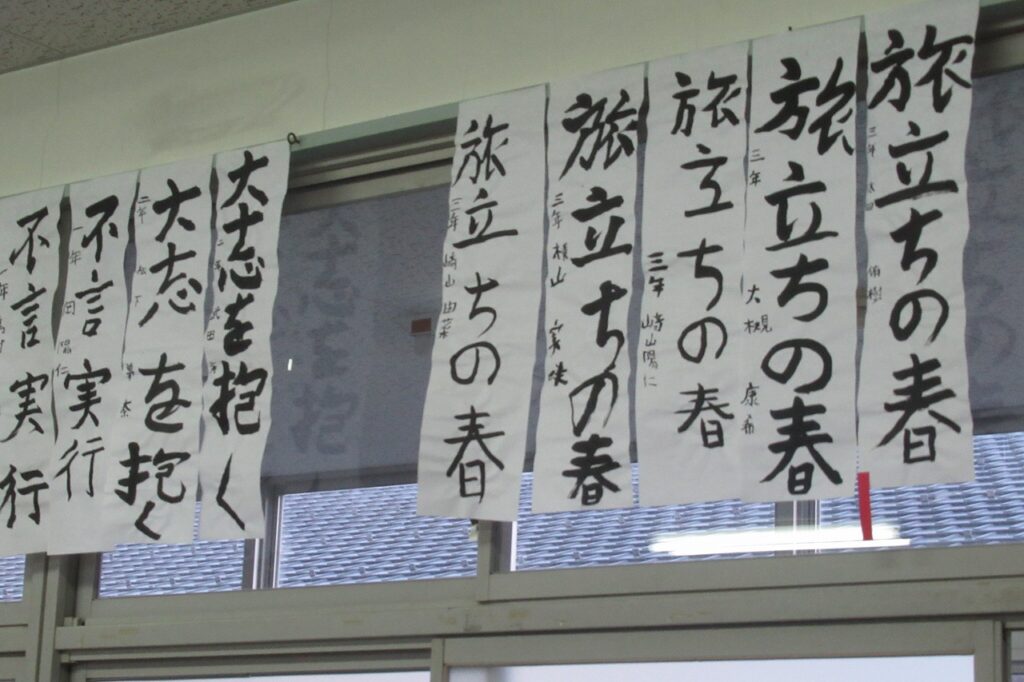 旅立ちの春
三年
旅立ちの春
三年 大槻 康希
旅立ちの春
三年 﨑山陽仁
旅立ちの春
三年 横山
旅立ちの春
三年 﨑山 由菜
大志を抱く
二年 武田
大志を抱く
二年 松下
不言実行
一年 田 陽仁
不言実行
一年